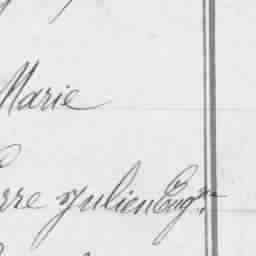 Marie
erre Julien Eugne